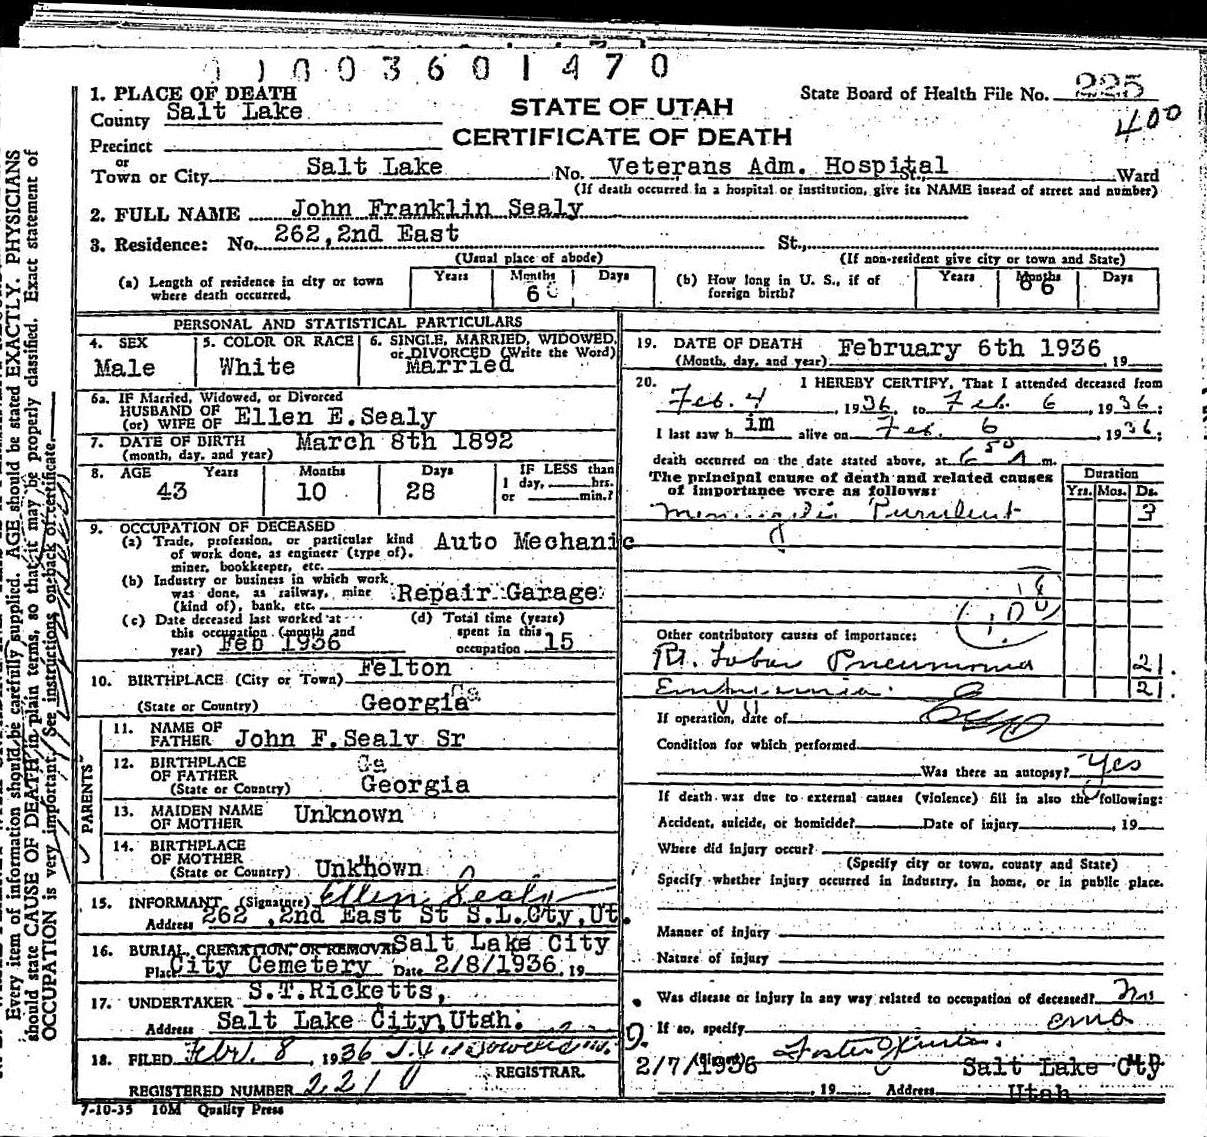 11003601470
1. PLACE OF DEATH
County Salt Lake
STATE OF UTAH
CERTIFICATE OF DEATH
State Board of Health File No. 225
400
Precinct
or
Town or City Salt Lake No. Veterans Adm. Hospital St., Ward
(If death occurred in a hospital or institution, give its NAME instead of street and number)
2. FULL NAME John Franklin Sealy
3. Residence: No. 262, 2nd East St.,
(Usual place of abode) (If non-resident give city or town and State)
(a) Length of residence in city or town where death occurred. Years Months 6 Days
(b) How long in U. S., if of foreign birth? Years Months 66 Days
PERSONAL AND STATISTICAL PARTICULARS
4. SEX Male
5. COLOR OR RACE White
6. SINGLE, MARRIED, WIDOWED, or DIVORCED (Write the Word) Married
6a. IF Married, Widowed, or Divorced
HUSBAND OF
(or) WIFE OF Ellen E. Sealy
7. DATE OF BIRTH March 8th 1892
(month, day, and year)
8. AGE Years 43 Months 10 Days 28 IF LESS than 1 day, hrs. or min.?
9. OCCUPATION OF DECEASED
(a) Trade, profession, or particular kind of work done, as engineer (type of), miner, bookkeeper, etc. Auto Mechanic
(b) Industry or business in which work was done, as railway, mine (kind of), bank, etc. Repair Garage
(c) Date deceased last worked at this occupation (month and year) Feb 1936
(d) Total time (years) spent in this occupation 15
10. BIRTHPLACE (City or Town) Felton
(State or Country) Georgia Ga
PARENTS
11. NAME OF FATHER John F. Sealy Sr
12. BIRTHPLACE OF FATHER Ga
(State or Country) Georgia
13. MAIDEN NAME OF MOTHER Unknown
14. BIRTHPLACE OF MOTHER
(State or Country) Unknown
15. INFORMANT (Signature) Ellen Sealy
Address 262, 2nd East St S.L.Cty, Ut.
16. BURIAL, CREMATION, OR REMOVAL Salt Lake City
Place City Cemetery Date 2/8/1936, 19
17. UNDERTAKER S.T. Ricketts,
Address Salt Lake City, Utah.
18. FILED Febr. 8, 1936
REGISTRAR.
REGISTERED NUMBER 2210
7-10-35 10M Quality Press
19. DATE OF DEATH February 6th 1936, 19
(Month, day, and year)
20. I HEREBY CERTIFY, That I attended deceased from
Feb. 4, 1936, to Feb. 6, 1936;
I last saw him alive on Feb. 6, 1936;
death occurred on the date stated above, at 6 50 A m.
The principal cause of death and related causes of importance were as follows: Duration Yrs. Mos. Ds.
Meningitis Purulent 3
Other contributory causes of importance:
Rt. Lobar Pneumonia 21
Empyemia. 21
If operation, date of
Condition for which performed
Was there an autopsy? Yes
If death was due to external causes (violence) fill in also the following:
Accident, suicide, or homicide? Date of injury, 19
Where did injury occur?
(Specify city or town, county and State)
Specify whether injury occurred in industry, in home, or in public place.
Manner of injury
Nature of injury
Was disease or injury in any way related to occupation of deceased? No
If so, specify
2/7/1936 (Signed) M.D.
Salt Lake Cty
19 Address Utah
Every item of information should be carefully supplied. AGE should be stated EXACTLY. PHYSICIANS
should state CAUSE OF DEATH in plain terms, so that it may be properly classified. Exact statement of
OCCUPATION is very important. See instructions on back of certificate.